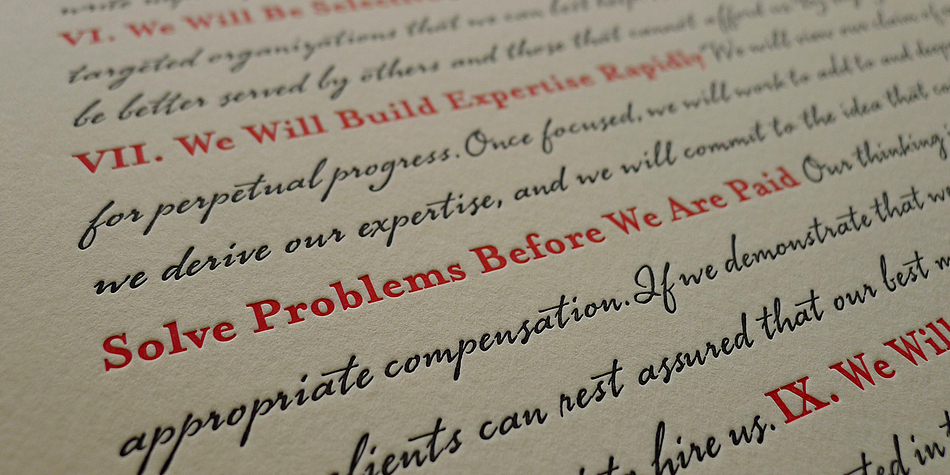 VI. We Will Be Selective
targeted organizations that we can best
be better served by others and those that cannot afford us. By
VII. We Will Build Expertise Rapidly We will view our claim of
for perpetual progress. Once focused, we will work to add to and
we derive our expertise, and we will commit to the idea that
Solve Problems Before We Are Paid Our thinking
appropriate compensation. If we demonstrate that
clients can rest assured that our best
hire us. IX. We Will